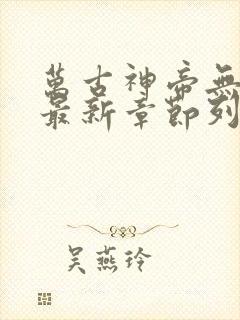 萬古神帝無
最新章節列
吴燕玲